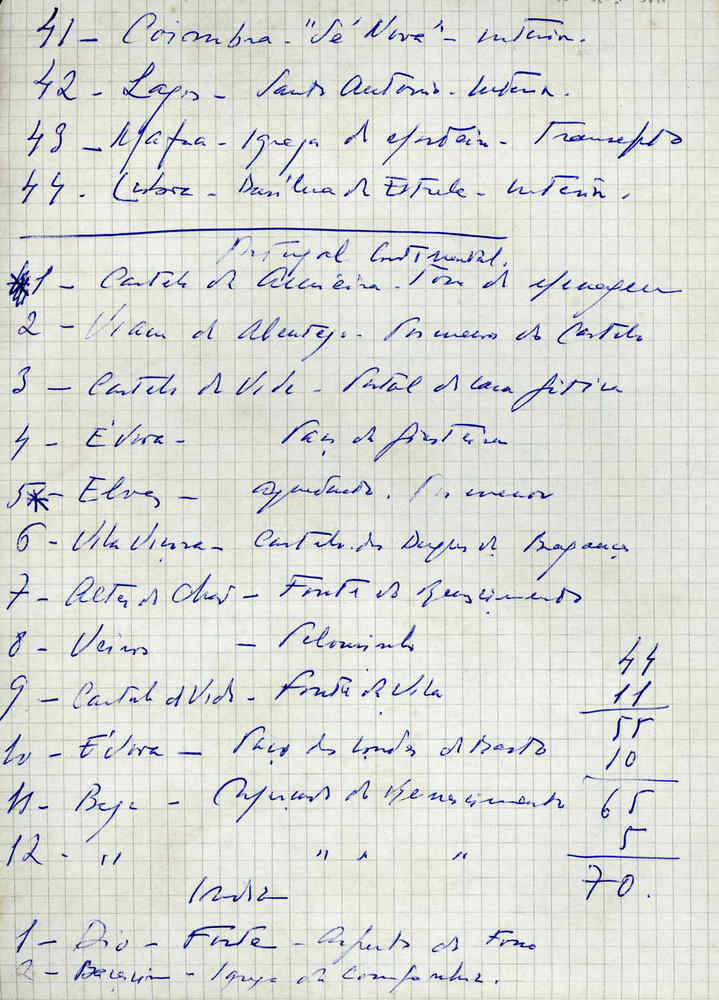 41 - Coimbra - "Sé Nova" - interior.
42 - Lagos - Santo António - Interior.
43 - Mafra - Igreja do Mosteiro - Transepto
44 - Lisboa - Basílica da Estrela - interior.
Portugal Continental.
1 - Castelo de Almeirna - Torre de Menagem
2 - Viana do Alentejo - Pormenor do Castelo
3 - Castelo de Vide - Portal de casa gótica
4 - Évora - Paço de
5 - Elvas - aqueduto. Pormenor
6 - Vila Viçosa - Castelo dos Duques de Bragança
7 - Alter do Chão - Fonte do Renascimento
8 - Veiros - Pelourinho
44
9 - Castelo de Vide - Fonte da Vila
11
55
10 - Évora - Paço dos Condes de Basto
10
11 - Beja - do Renascimento
65
5
12 - " " " "
70.
India
1 - Dio - Forte - Aspecto do Fosso
2 - Baçaim - Igreja da Companhia.